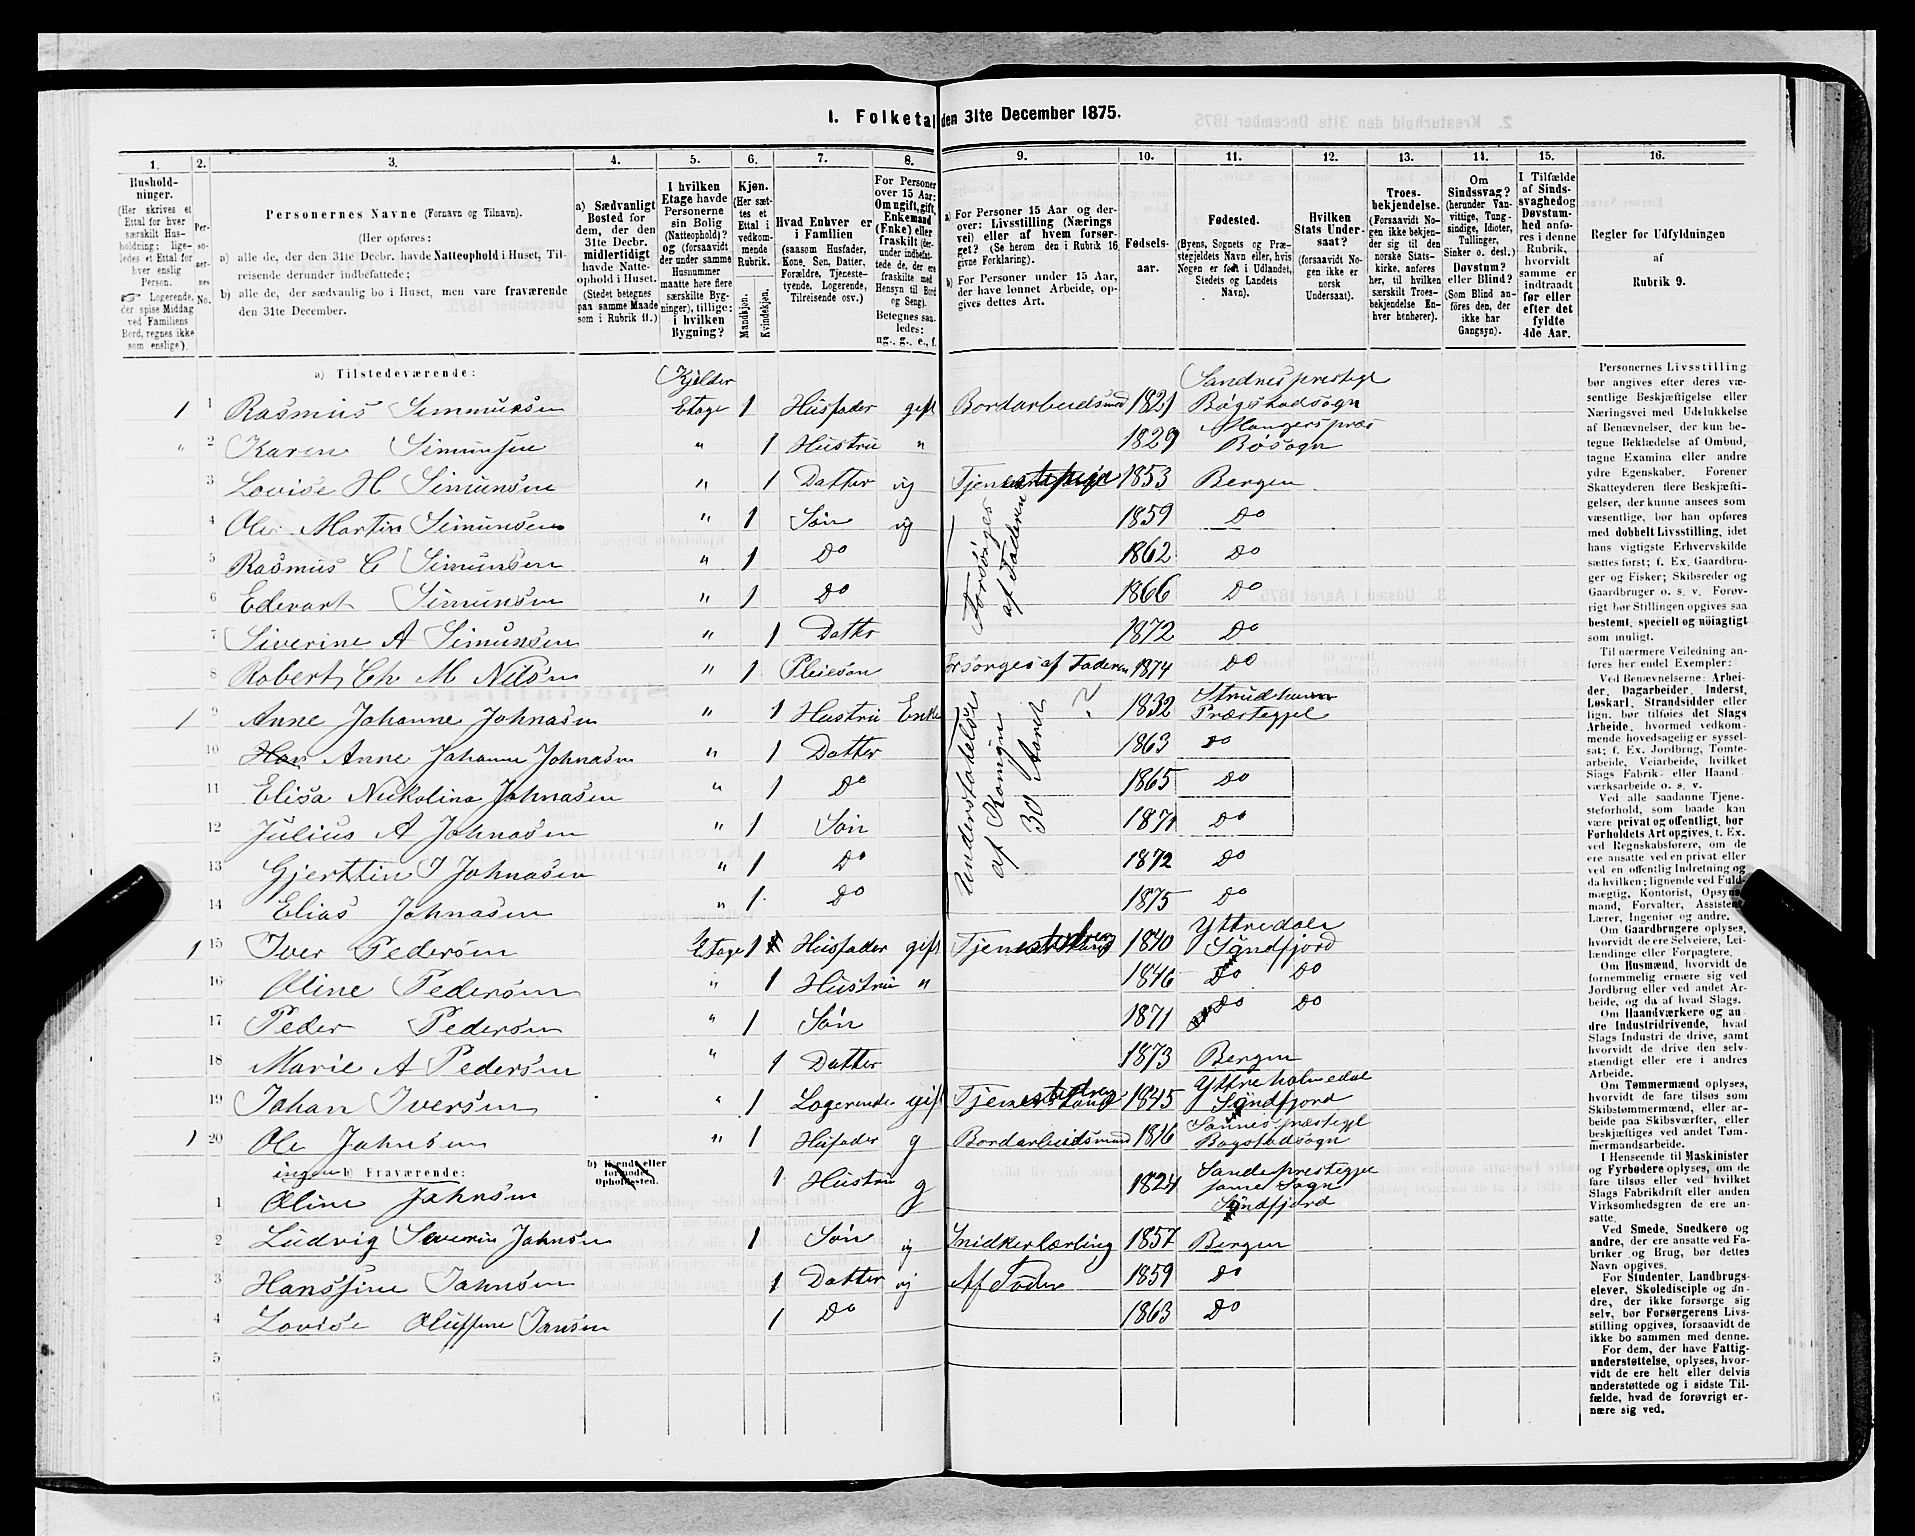 1. Folketal den 31te December 1875.
1. 2. 3. 4. 5. 6. 7. 8. 9. 10. 11. 12. 13. 14. 15. 16.
Husholdninger.
(Her skrives et
Ettal for hver
særskilt Husholdning;
ligeledes
et Ettal for
hver enslig
Person.
☞ Logerende,
der spise Middag
ved Familiens
Bord, regnes ikke
som enslige).
Personernes No.
Personernes Navne (Fornavn og Tilnavn).
(Her opføres:
a) alle de, der den 31te Decbr. havde Natteophold i Huset, Tilreisende
derunder indbefattede;
b) alle de, der sædvanlig bo i Huset, men vare fraværende
den 31te December.
a) Sædvanligt
Bosted for
dem, der den
31te Decbr.
midlertidigt
havde Natteophold
i Huset.
(Stedet betegnes
paa samme Maade
som i Rubrik 11.)
I hvilken
Etage havde
Personerne
sin Bolig
(Natteophold)?
og (forsaavidt
der under samme
Husnummer
maatte høre flere
særskilte Bygninger),
tillige:
i hvilken
Bygning?
Kjøn.
(Her sættes
et
Ettal i
vedkommende
Rubrik.
Mandkjøn.
Kvindekjøn.
Hvad Enhver er
i Familien
(saasom Husfader,
Kone, Søn, Datter,
Forældre, Tjenestetyende,
Logerende,
Tilreisende osv.)
For Personer
over 15 Aar:
Om ugift, gift,
Enkemand
(Enke) eller
fraskilt (derunder
indbefattede
de, der ere
fraskilte med
Hensyn til Bord
og Seng).
Betegnes saaledes:
ug., g., e., f.
a) For Personer 15 Aar og derover:
Livsstilling (Næringsvei)
eller af hvem forsørget?
(Se herom den i Rubrik 16
givne Forklaring).
b) For Personer under 15 Aar,
der have lønnet Arbeide, opgives
dettes Art.
Fødselsaar.
Fødested.
(Byens, Sognets og Præstegjeldets
Navn eller, hvis
Nogen er født i Udlandet,
Stedets og Landets
Navn).
Hvilken
Stats Undersaat?
(forsaavidt Nogen
ikke er
norsk
Undersaat).
Troesbekjendelse.
(Forsaavidt Nogen
ikke bekjender
sig til den
norske Statskirke,
anføres
her, til hvilken
særskilt Troesbekjendelse
Enhver
henhører).
Om
Sindssvag?
(herunder Vanvittige,
Tungsindige,
Idioter,
Tullinger,
Sinker o. desl.)
Døvstum?
eller Blind?
(Som Blind anføres
den, der
ikke har
Gangsyn).
I Tilfælde
af Sindssvaghed
og
Døvstumhed
anføres
i denne
Rubrik,
hvorvidt
samme er
indtraadt
før eller
efter det
fyldte
4de Aar.
Regler for Udfyldningen
af
Rubrik 9.
a) Tilstedeværende:
1 1 Rasmus Simmunsen Kjelder Etage 1 Husfader gift Bordarbeidsmd 1821 Sandnes prestegl Bøgstadsogn
" 2 Karen Simunsen " 1 Hustru " 1829 Bøsogn
3 Lovise H Simunsen " 1 Datter ug 1853 Bergen
4 Ole Martin Simunsen " 1 Søn ug 1859 Do
5 Rasmus C Simunsen " 1 Do 1862 Do
6 Edevart Simunsen " 1 Do 1866 Do
Forsørges af Faderen
7 Siverine A Simunsen " 1 Datter 1872 Do
8 Robert Ch M Nilsen " 1 Pleiesøn Forsørges af Faderen 1874 Do
1 9 Anne Johanne Johnasen " 1 Hustru Enke ? 1832 Præstegjel
10 Anne Johanne Johnasen " 1 Datter 1863 Do
11 Elisa Nickolina Johnasen " 1 Do 1865 Do
Understøttelse af Komign 30 Aaret
12 Julius A Johnasen " 1 Søn 1871 Do
13 Gjerttin I Johnasen " 1 Do 1872 Do
14 Elias Johnasen " 1 Do 1875 Do
1 15 Iver Pedersen 1 Etage 1 Husfader gift 1840 Yttredale Søndfjord
16 Oline Pedersen " 1 Hustru " 1846 Do Do
17 Peder Pedersen " 1 Søn 1871 Do Do
18 Marie A Pedersen " 1 Datter 1873 Bergen
19 Johan Iversen " 1 Logerende gift 1845 Yttre holmedal Søndfjord
1 20 Ole Johnsen " 1 Husfader g Bordarbeidsmand 1816 Sannes prestegl Bogstadsogn
ingen b) Fraværende:
b) Kjendt eller
formodet
Opholdssted.
1 Oline Johnsen 1 Hustru g 1824 Sande prestegjel same Sogn Søndfjord
2 Ludvig Severin Johnsen 1 Søn ug Snidkerlærling 1857 Bergen
3 Hanssine Johnsen 1 Datter ug Af Fader 1859 Do
4 Lovise Oluffine Jansen 1 Do 1863 Do
5
6
Personernes Livsstilling
bør angives efter deres væsentlige
Beskjæftigelse eller
Næringsvei med Udelukkelse
af Benævnelser, der kun betegne
Beklædelse af Ombud,
tagne Examina eller andre
ydre Egenskaber. Forener
Skatteyderen flere Beskjæftigelser,
der kunne ansees som
væsentlige, bør han opføres
med dobbelt Livsstilling, idet
hans vigtigste Erhvervskilde
sættes først; f. Ex. Gaardbruger
og Fisker; Skibsreder og
Gaardbruger o. s. v. Forøvrigt
bør Stillingen opgives saa
bestemt, specielt og nøiagtigt
som muligt.
Til nærmere Veiledning anføres
her endel Exempler:
Ved Benævnelserne: Arbeider,
Dagarbeider, Inderst,
Løskarl, Strandsidder eller
lign. bør tilføies det Slags
Arbeide, hvormed vedkommende
hovedsagelig er sysselsat;
f. Ex. Jordbrug, Tomtearbeide,
Veiarbeide, hvilket
Slags Fabrik- eller Haandværksarbeide
o. s. v.
Ved alle saadanne Tjenesteforhold,
som baade kan
være privat og offentligt, bør
Forholdets Art opgives, f. Ex.
ved Regnskabsførere, om de
ere ansatte ved en privat eller
ved en offentlig Indretning og
da hvilken; lignende ved Fuldmægtig,
Kontorist, Opsynsmand,
Forvalter, Assistent,
Lærer, Ingeniør og andre.
Om Gaardbrugere oplyses,
hvorvidt de ere Selveiere, Leilændinge
eller Forpagtere.
Om Husmænd, hvorvidt de
fornemmelig ernære sig ved
Jordbrug eller ved andet Arbeide,
og da af hvad Slags.
Om Haandværkere og andre
Industridrivende, hvad
Slags Industri de drive, samt
hvorvidt de drive den selvstændigt
eller ere i andres
Arbeide.
Om Tømmermænd oplyses,
hvorvidt de fare tilsøs som
Skibstømmermænd, eller arbeide
paa Skibsværfter, eller
beskjæftiges ved andet Tømmermandsarbeide.
I Henseende til Maskinister
og Fyrbødere oplyses, om de
fare tilsøs eller ved hvilket
Slags Fabrikdrift eller anden
Virksomhedsgren de ere ansatte.
Ved Smede, Snedkere og
andre, der ere ansatte ved Fabriker
og Brug, bør dettes
Navn opgives.
For Studenter, Landbrugselever,
Skoledisciple og andre,
der ikke forsørge sig
selv, bør Forsørgerens Livsstilling
opgives, forsaavidt de
ikke bo sammen med denne.
For dem, der have Fattigunderstøttelse,
oplyses, hvorvidt
de ere helt eller delvis
understøttede og i sidste Tilfælde,
hvad de forøvrigt ernære
sig ved.